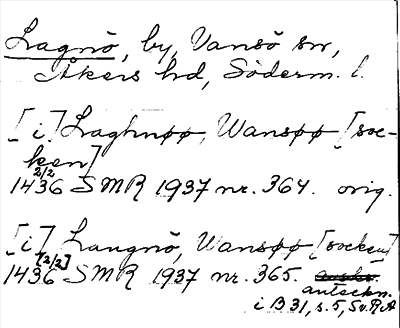 Lagnö, by, Vansö sn,
Åkers hd, Söderm. l.
[i] Laghnøø, Wansøø [soc-
ken]
2/2
1436 SMR 1937 nr. 364. orig.
[i] Langnö, Wansøø [socken]
[2/2]
1436 SMR 1937 nr. 365.
anteckn.
i B 31, s. 5, Sv. R A